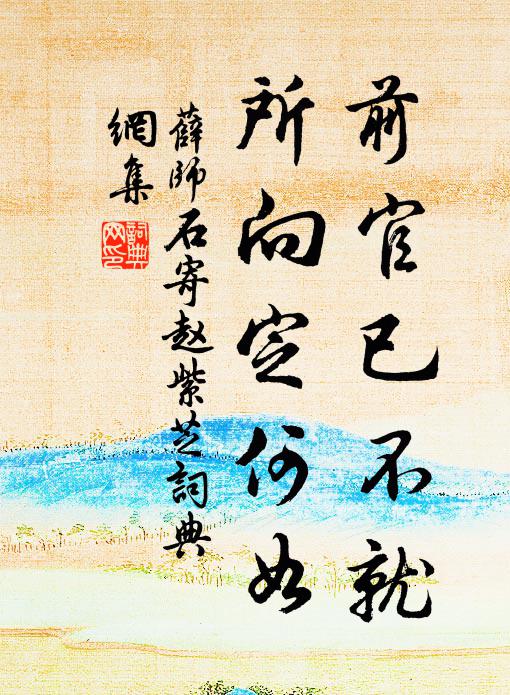 前官已不就
所向定何如
薛师石寄赵紫芝詞典
網集
詞典網印